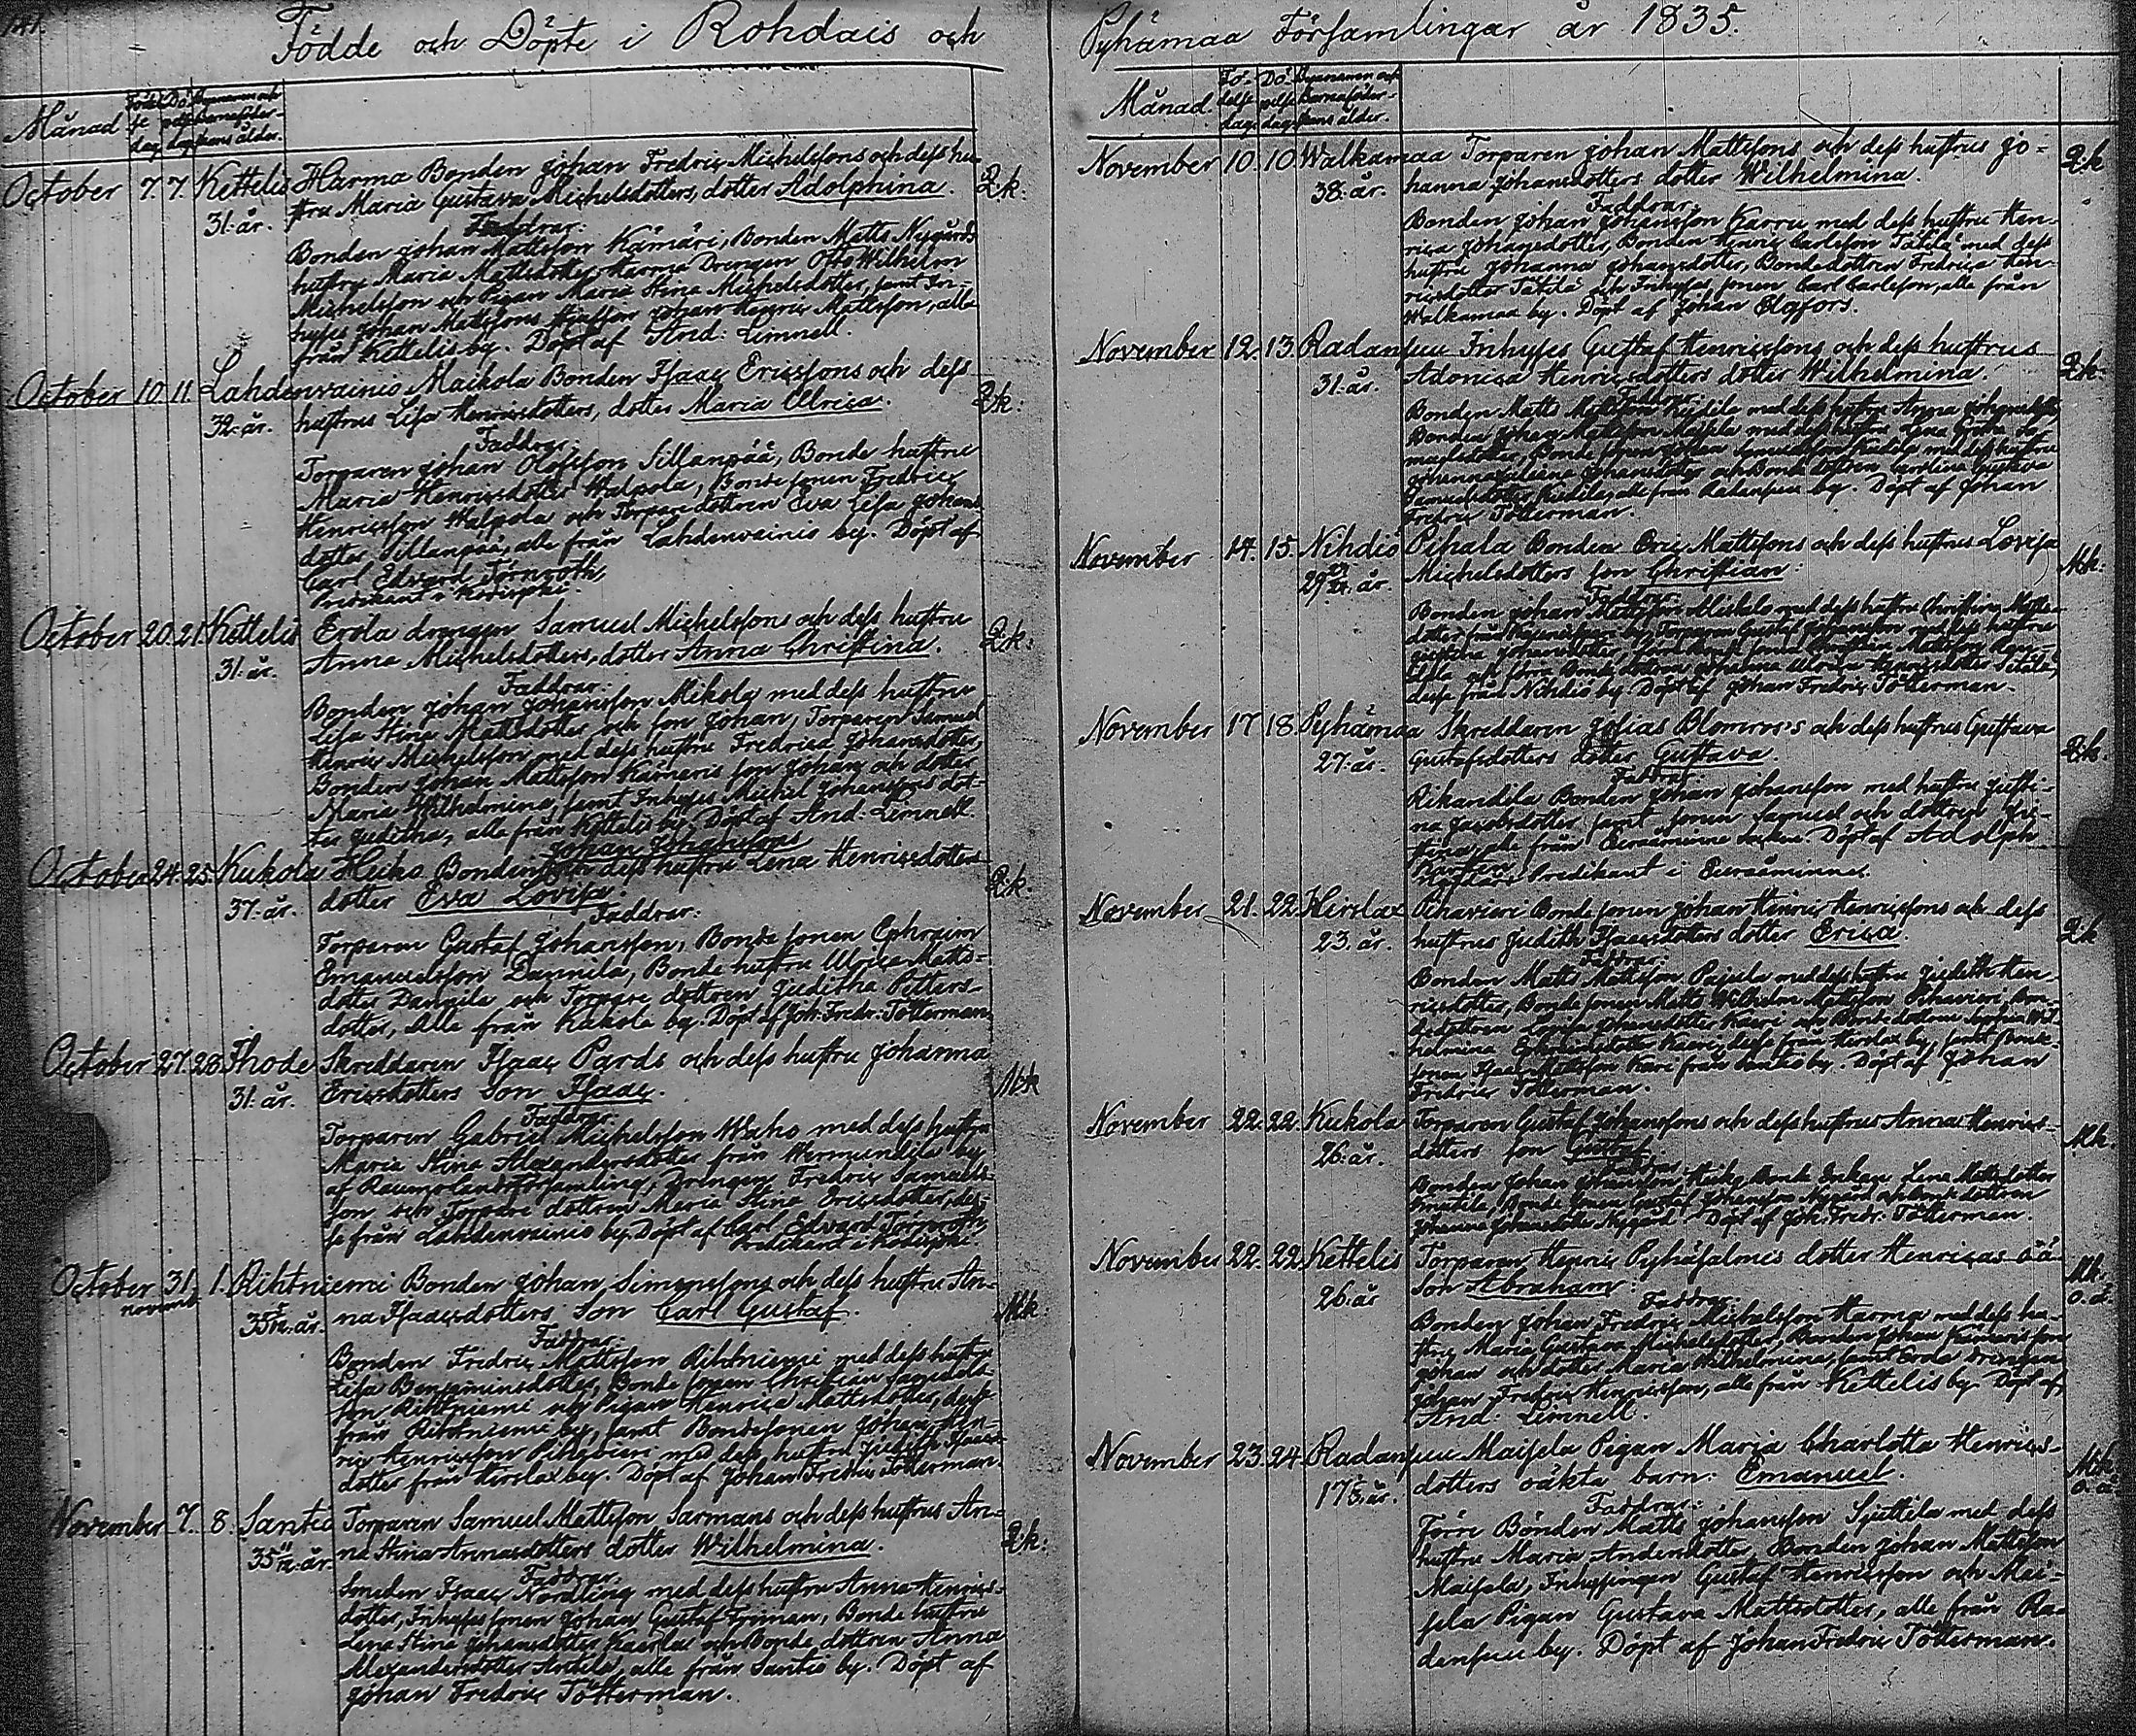 Födde och Döpte i Rohdais och
Månad
October 7. 7. Kettelis Harma Bonden Johan Fredric Michelssons och dess hu- Q.k.
31. år. stru Maria Gustava Michelsdotters, dotter Adolphina.
Faddrar:
Bonden Johan Mattsson Kämäri, Bonden Matts Nygårds
hustru Maria Mattsdotter, Harma Drengen Otto Wilhelm
Michelsson och Pigan Maria Stina Michelsdotter, samt In-
hyses Johan Mattssons Johan Henric Mattsson, alla
från Kettelis by. Döpt af And: Limnell.
October 10. 11. Lahdenvainio Maikola Bonden Isaac Ericssons och dess Q.k.
32. år. hustrus Lisa Henricsdotters, dotter Maria Ulrica.
Faddrar:
Torparen Johan Olofsson Sillanpää, Bonde hustru
Maria Henricsdotter Walpola, Bonde sonen Fredric
Henricsson Walpola och Torpare dottren Eva Lisa Johans
dotter Sillanpää, alle från Lahdenvainio by. Döpt af
Carl Edvard Törnroth,
Predikant i Kodisjoki.
October 20. 21. Kettelis Erola drengen Samuel Michelsons och dess hustru Q.k.
31. år. Anna Michelsdotters, dotter Anna Christina.
Faddrar:
Bonden Johan Johansson Mikola med dess hustru
Lisa Stina Mattsdotter och son Johan, Torparen Samuel
Henric Michelsson med dess hustru Fredrica Johansdotter,
Bonden Johan Mattsson Kämeris son Johan och dotter
Maria Wilhelmina, samt Inhyses Michel Johanssons dot-
ter Juditha, alle från Kettelis by. Döpt af And: Limnell.
Johan Johanssons
October 24. 25. Kukola Heiko Bonden och dess hustru Lena Henricsdotters Q.k.
37. år. dotter Eva Lovisa
Faddrar:
Torparen Gustaf Johansson, Bonde sonen Ephraim
Emanuelsson Dannila, Bonde hustru Ulrica Matts-
dotter Dannila och Torpare dottren Juditha Petters-
dotter, Alle från Kukola by. Döpt af Joh: Fredr: Tötterman.
October 27. 28. Ihode Skreddaren Isaac Pards och dess hustru Johanna M.k
31. år. Ericsdotters Son Isaac.
Faddrar.
Torparen Gabriel Michelsson Waho med dess hustru
Maria Stina Alexandersdotter från Hermundila by
af Raumo Landsförsamling, Drengen Fredric Samuels-
son och Torpare dottren Maria Stina Ericsdotter, des-
se från Lahdenvainio by. Döpt af Carl Edvard Törnroth,
Predikant i Kodisjoki
October 31. 1. Rihtniemi Bonden Johan Simonssons och dess hustru An- M.k
novemb.
na Isaacsdotters Son Carl Gustaf.
Faddrar:
Bonden Fredric Mattsson Rihtniemi med dess hustru
Lisa Benjaminsdotter, Bonde sonen Christian
son Rihtniemi och Pigan Henrica Mattsdotter, desse
från Rihtniemi by, samt Bondesonen Johan Hen-
ric Henricsson Pihavieri med dess hustru Judith Isaacs-
dotter från Hirslax by. Döpt af Johan Fredric Tötterman.
November 7. 8. Santio Torparen Samuel Mattsson Sarmans och dess hustrus An- Q.k:
na Stina Annasdotters dotter Wilhelmina.
Faddrar.
Smeden Isaac Nordling med dess hustru Anna Henrics-
dotter, Inhyses sonen Johan Gustaf Friman, Bonde hustru
Lena Stina Johansdotter Kaarla och Bonde dottren Anna
Alexandersdotter Anttila, alle från Santio by. Döpt af
Johan Fredric Tötterman.
Pyhämaa Församlingar år 1835.
Månad
November 10. 10. Walkamaa Torparen Johan Mattssons och dess hustrus Jo- Q.k
38. år. hanna Johansdotters dotter Wilhelmina.
Faddrar:
Bonden Johan Johansson Karru med dess hustru Hen-
rica Johansdotter, Bonden Henric Carlsson Tätilä med dess
hustru Johanna Johansdotter, Bondedottren Fredrica Hen-
ricsdotter Tätilä och Inhyses sonen Carl Carlsson, alle från
Walkamaa by. Döpt af Johan Elgfors.
November 12. 13. Radansuu Inhyses Gustaf Henricssons och dess hustrus Q.k.
31. år. Adonica Henricsdotters dotter Wilhelmina.
Faddrar.
Bonden Matts Mattsson Keidila med dess hustru Anna
Bonden Johan Mattsson Maisela med dess hustru
Bonde sonen Johan med dess hustru
Johansdotter och Bonde dottren Carolina Gustava
Samuelsdotter Keidila, alle från Radansuu by. Döpt af Johan
Fredric Tötterman.
November 14. 15. Nihdiö Pihala Bonden Eric Mattssons och dess hustrus Lovisa M.k:
Michelsdotters son Christian:
Faddrar:
Bonden Johan med dess hustru Christina Matts-
dotter från by, Torparen Gustaf Johansson med dess hustru
Justina Johansdotter,
Bonde dottren Johanna Ulrica Henricsdotter
desse från Nihdiö by. Döpt af Johan Fredric Tötterman.
November 17. 18. Pyhämaa Skreddaren Josias Blomros's och dess hustrus Gustava Q.k.
27. år. Gustafsdotters dotter Gustava.
Faddrar
Rikandila Bonden Johan Johansson med hustru Justi-
na Jacobsdotter samt sonen Samuel och dottren Ju-
stina, alle från Euraåminne Socken. Döpt af Adolph
Predikant i Euraåminne.
November 21. 22. Hirslax Pihavieri Bonde sonen Johan Henric Henricssons och dess Q.k
23. år. hustrus Judith Isaacsdotters dotter Erica.
Faddrar:
Bonden Matts Mattsson Paisela med dess hustru Judith Hen-
ricsdotter, Bonde sonen Matts Wilhelm Mattsson Pihavieri, Bon-
dedottren Johansdotter Kaeri och Bonde dottren Wil-
helmina från Hirslax by, samt Bonde-
sonen Isaac Mattsson Kari från Santio by. Döpt af Johan
Fredric Tötterman.
November 22. 22. Kukola Torparen Gustaf Johanssons och dess hustrus Anna Henrics- M.k.
26. år. dotters son Gustaf.
Faddrar
Bonden Johan Johansson Heiko, Bonde Enkan Lena Mattsdotter
Bonde sonen Gustaf Johansson Nygård och Bonde dottren
Johanna Johansdotter Nygård. Döpt af Joh. Fredr: Tötterman.
November 22. 22. Kettelis Torparen Henric Pyhäsalmis dotter Henricas oä- M.k.
26. år Son Abraham: o. ä.
Faddrar.
Bonden Johan Fredric Michelsson Harma med dess hu-
stru Maria Gustava Michelsdotter, Bonden Johan Kämeris son
Johan och dotter Maria Wilhelmina, samt Erola drengen
Johan Fredric Henricsson, alle från Kettelis by. Döpt af
And: Limnell.
November 23. 24. Radansuu Maisela Pigan Maria Charlotta Henrics- M.k.
dotters oäkta barn: Emanuel. o. ä.
Faddrar:
Förre Bonden Matts Johansson Sjuttila med dess
hustru Maria Andersdotter, Bonden Johan Mattsson
Maisela, Inhysingen Gustaf Henricsson och Mai-
sela Pigan Gustava Mattsdotter, alle från Ra-
dansuu by. Döpt af Johan Fredric Tötterman.